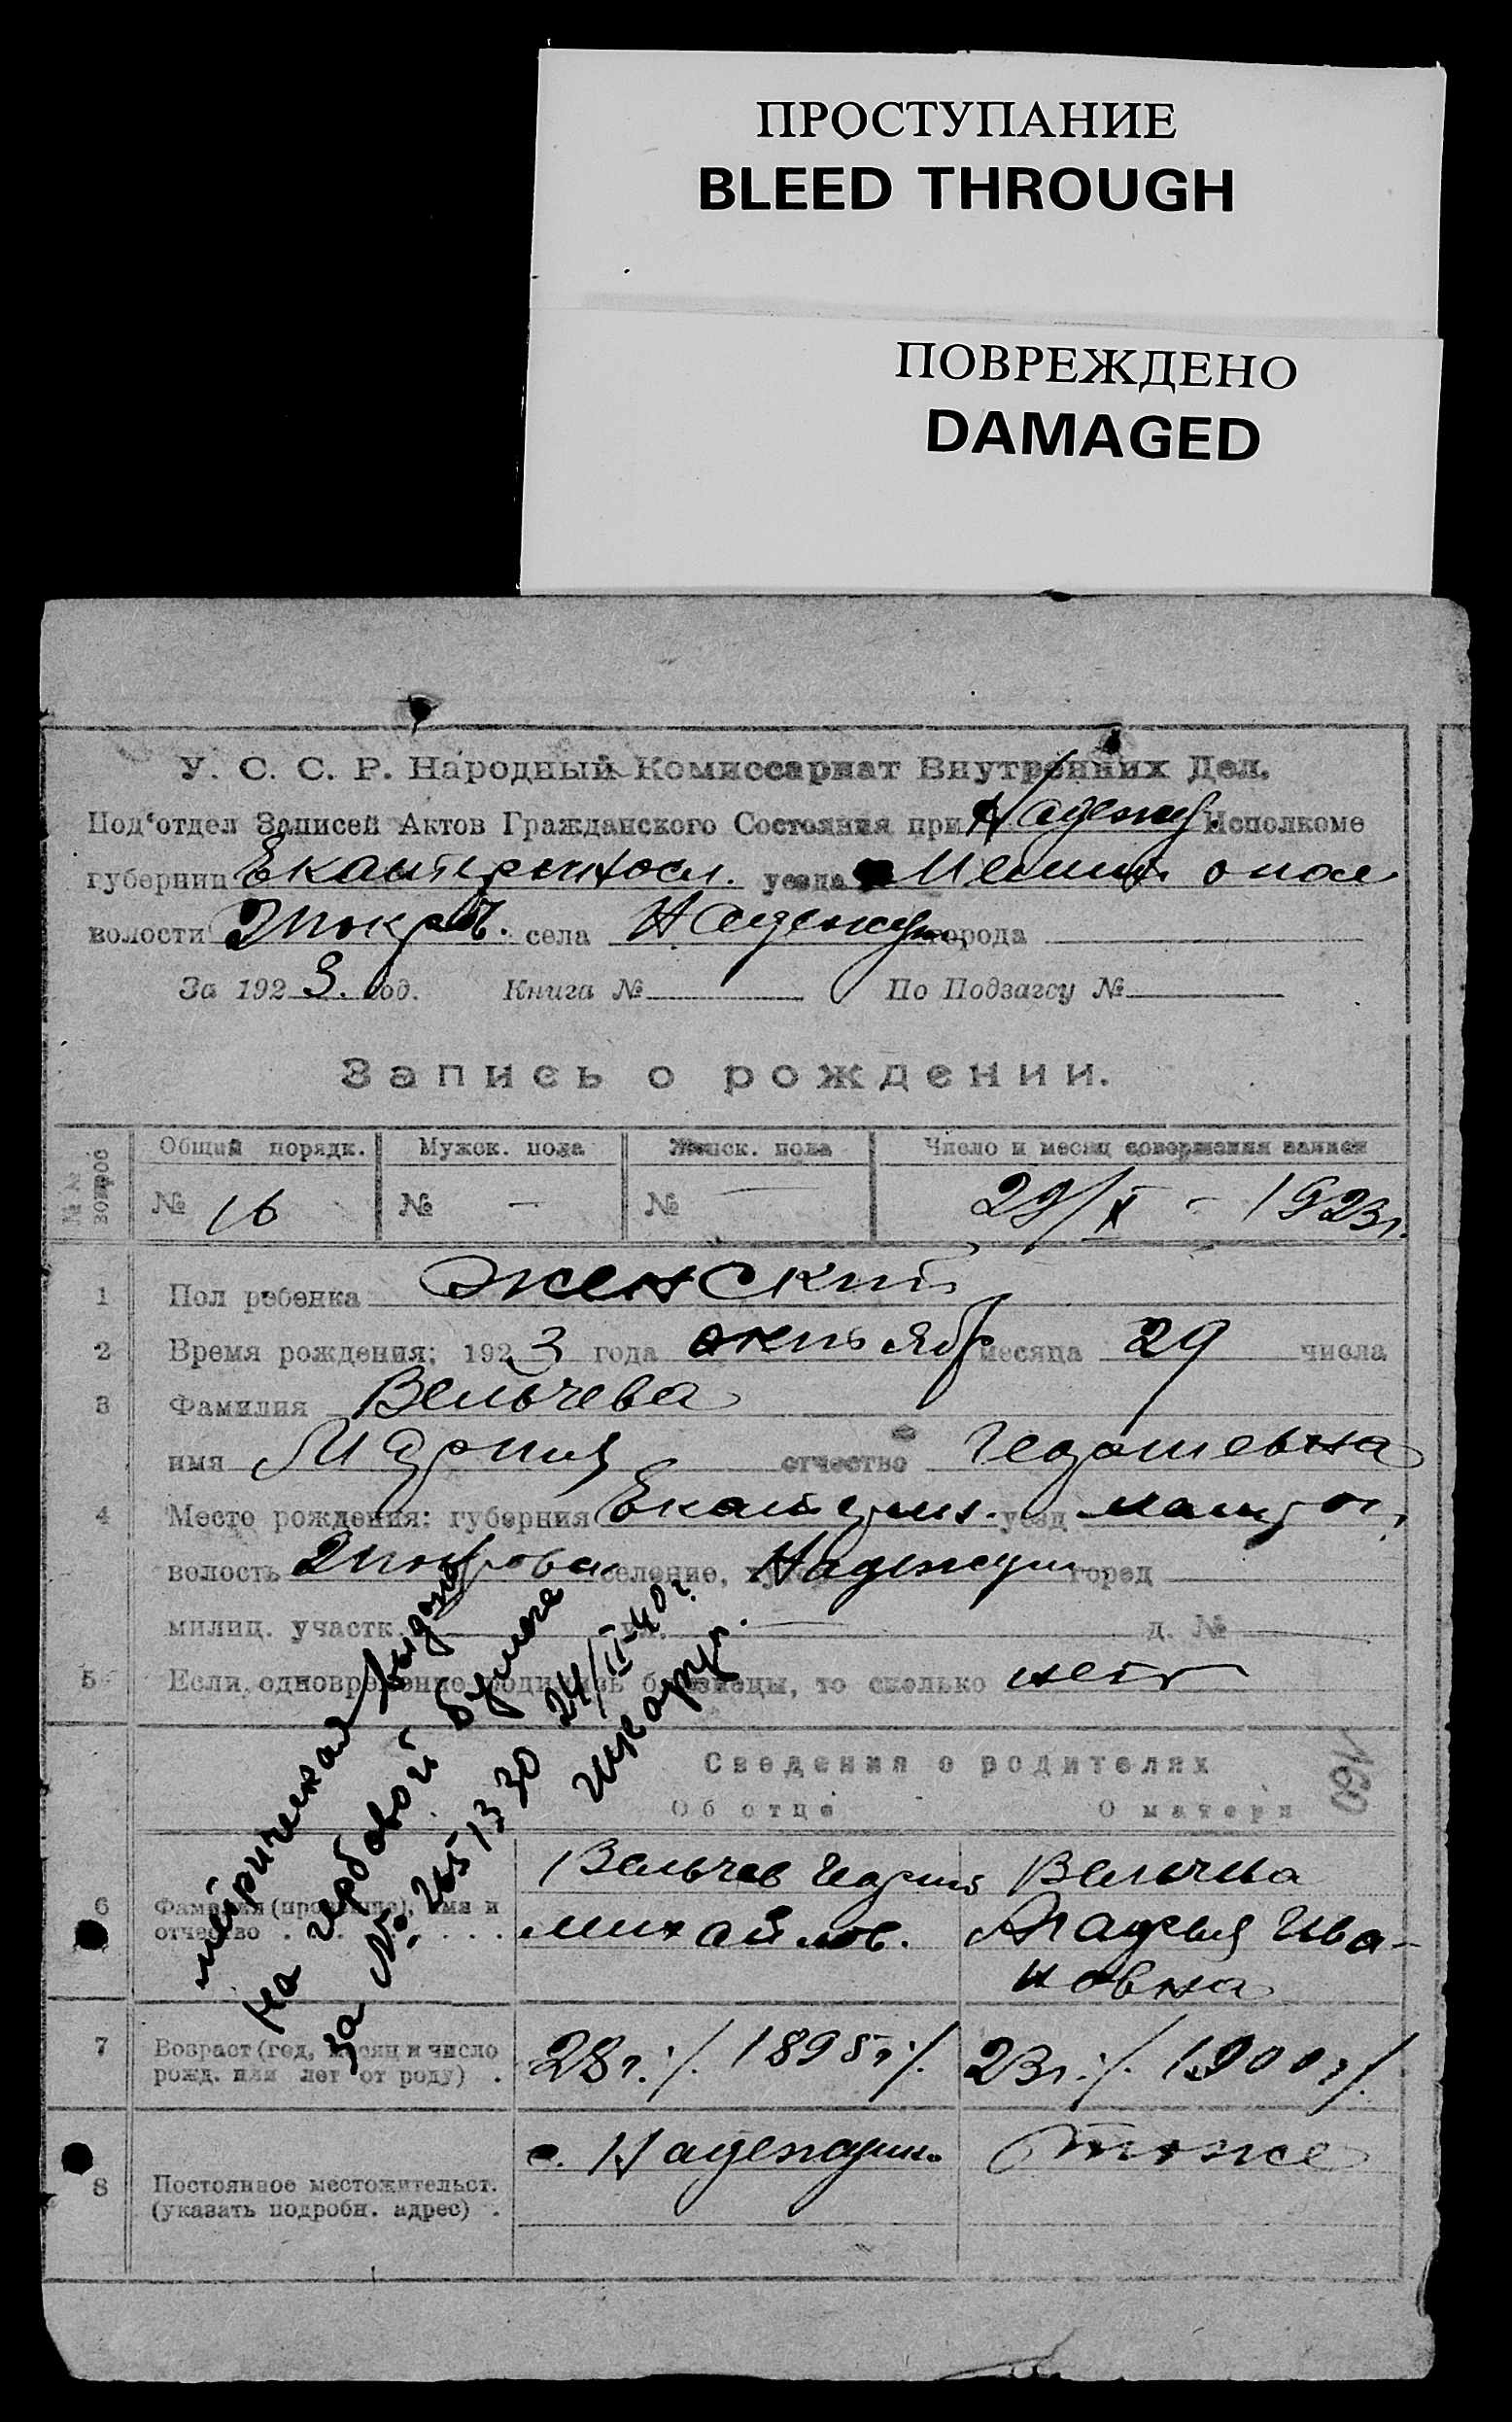 ПРОСТУПАНИЕ
BLEED THROUGH
ПОВРЕЖДЕНО
DAMAGED
У. С. С. Р. Народный Комиссариат Внутренних Дел.
Под'отдел Записей Актов Гражданского Состояния при Надежд. Исполкоме
губернии Екатериносл. уезда
волости села города
За 1923. год. Книга № По Подзагсу №
Запись о рождении.
№ № вопрос Общий порядк. Мужск. пола Женск. пола Число и месяц совершения записи
№ 16 № - № 29/X - 1923г.
1 Пол ребенка женский
2 Время рождения: 1923 года октябр месяца 29 числа
3 Фамилия Вельчева
имя Мария отчество
4 Место рождения: губерния уезд
волость селение, город
милиц. участк. ул. д. №
5 Если одновременно родились близнецы, то сколько нет
метрическая выдана
на гербовой бумаге
за № 265130 24/II-40г.
Сведения о родителях
160
Об отце О матери
6 Фамилия (прозвище), имя и отчество . . . . . .
Вельчев
Михайлов.
Вельчева
Ива-
новна
7 Возраст (год, месяц и число рожд. или лет от роду) . 28 г. /. 1895 г /. 23 г. /. 1900 г /.
8 Постоянное местожительст. (указать подробн. адрес) . с. тоже